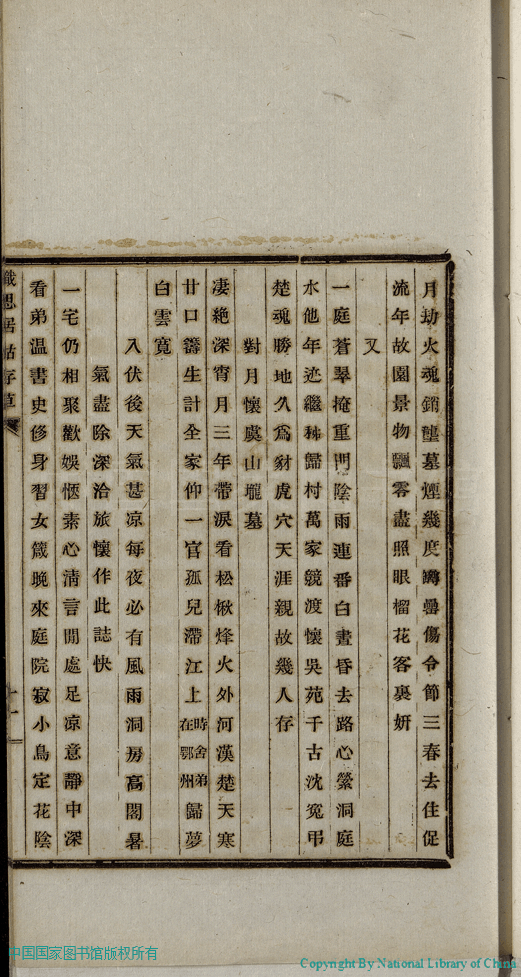 月劫火魂銷壟墓煙幾度罇罍傷令節三春去住促
流年故園景物飄零盡照眼榴花客裏妍
又
一庭蒼翠掩重門陰雨連番白晝昏去路心縈洞庭
水他年迹繼秭歸村萬家競渡懷吳苑千古沈冤弔
楚魂勝地久爲豺虎穴天涯親故幾人存
對月懷虞山壠墓
凄絕深宵月三年帶淚看松楸烽火外河漢楚天寒
廿口籌生計全家仰一官孤兒滯江上時舍弟在鄂州歸夢
白雲寬
入伏後天氣甚凉每夜必有風雨洞房高閣暑
氣盡除深洽旅懷作此誌快
一宅仍相聚歡娛愜素心淸言閒處足凉意靜中深
看弟温書史修身習女箴晚來庭院寂小鳥定花陰
織思居詩存草
十一
中国国家图书馆版权所有
Copyright By National Library of China